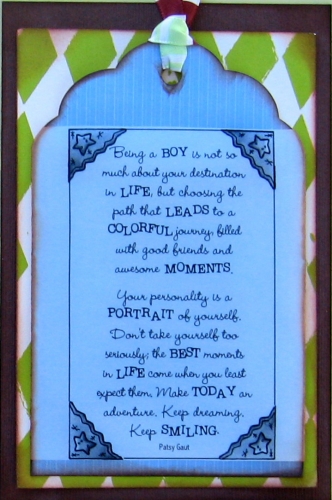 Being a BOY is not so
much about your destination
in LIFE, but choosing the
path that LEADS to a
COLORFUL journey, filled
with good friends and
awesome MOMENTS.
Your personality is a
PORTRAIT of yourself.
Don't take yourself too
seriously; the BEST moments
in LIFE come when you least
expect them. Make TODAY an
adventure. Keep dreaming.
Keep SMILING.
Patsy Gaut